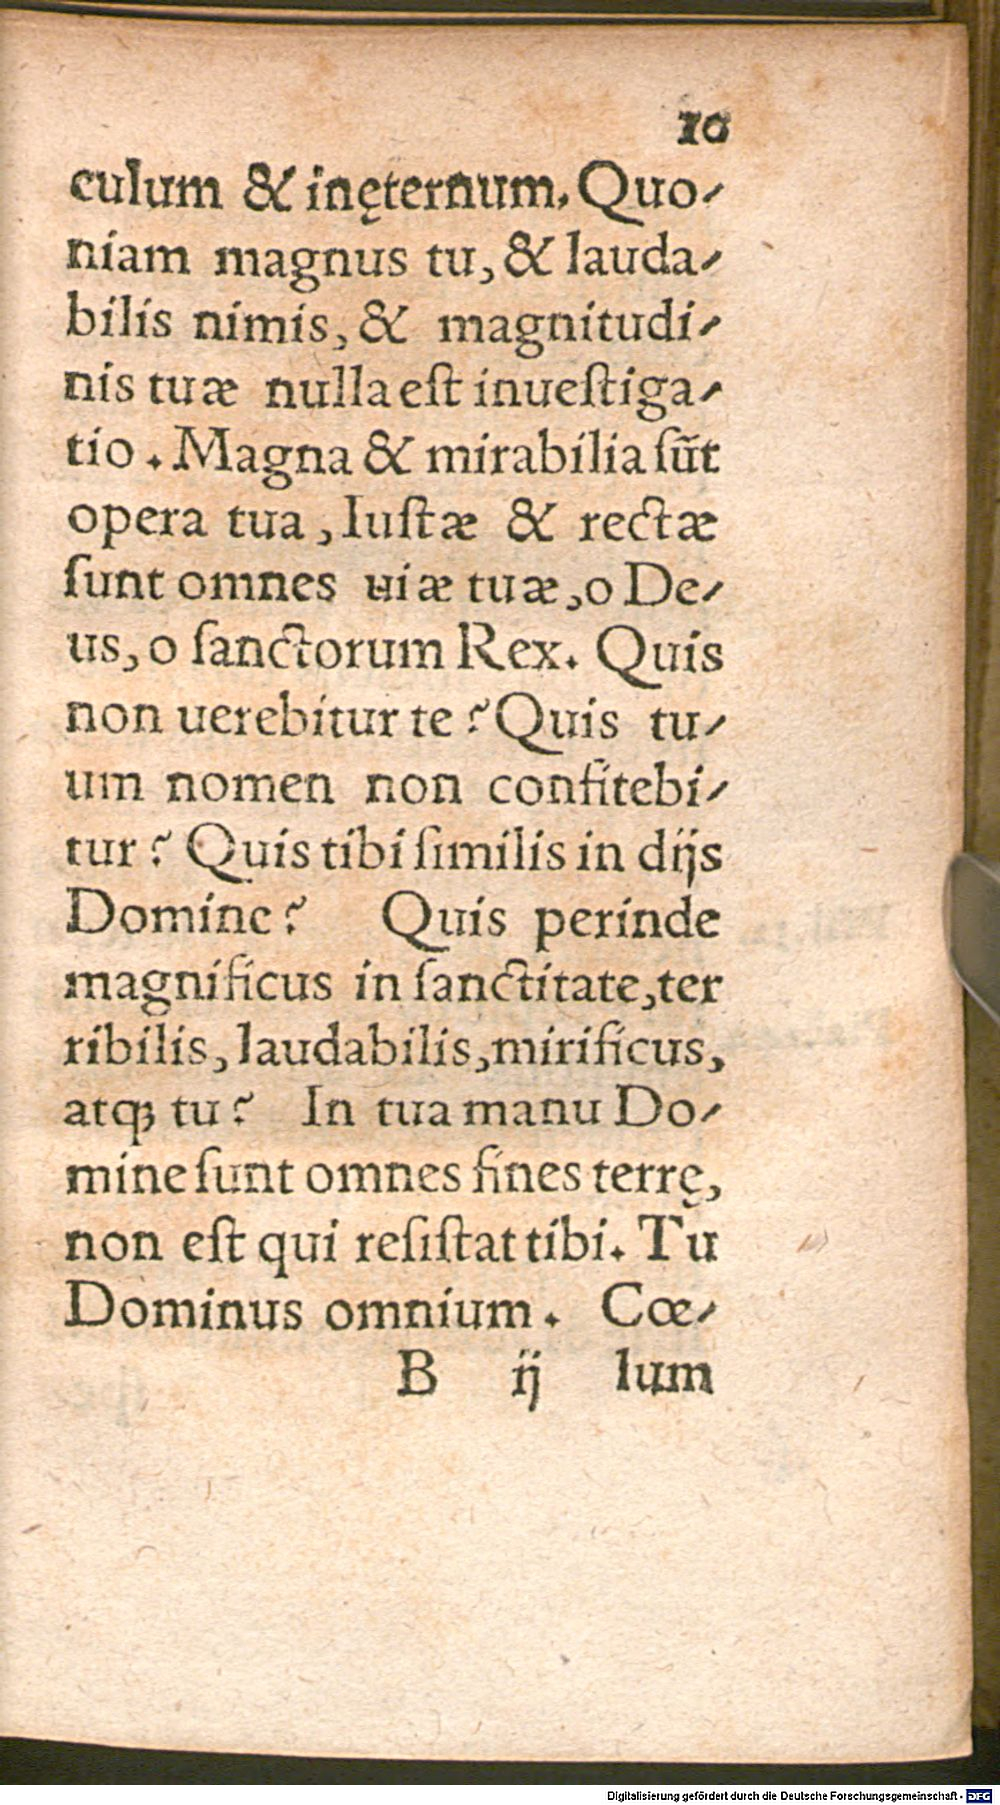 10
culum & inęternum. Quo-
niam magnus tu, & lauda-
bilis nimis, & magnitudi-
nis tuæ nulla est inuestiga-
tio. Magna & mirabilia sūt
opera tua, Iustæ & rectæ
sunt omnes uiæ tuæ, o De-
us, o sanctorum Rex. Quis
non uerebitur te? Quis tu-
um nomen non confitebi-
tur? Quis tibi similis in dijs
Domine? Quis perinde
magnificus in sanctitate, ter
ribilis, laudabilis, mirificus,
atq; tu? In tua manu Do-
mine sunt omnes fines terrę,
non est qui resistat tibi. Tu
Dominus omnium. Cœ-
B ij lum
Digitalisierung gefördert durch die Deutsche Forschungsgemeinschaft - DFG